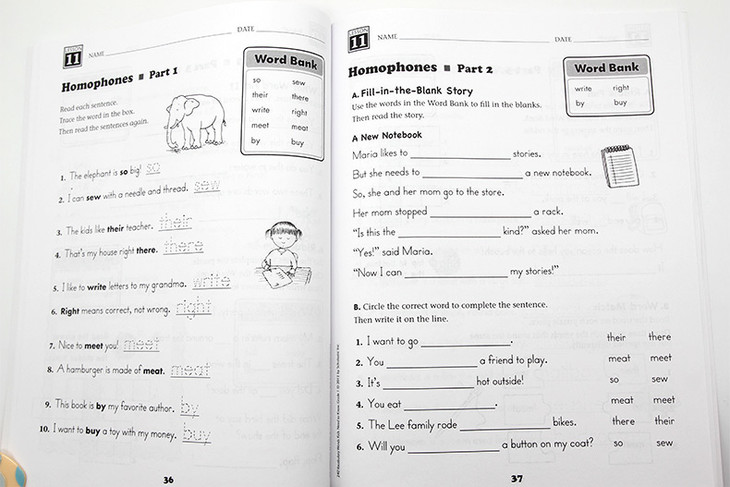 LESSON
11
NAME
DATE
Homophones ■ Part 1
Read each sentence.
Trace the word in the box.
Then read the sentences again.
Word Bank
so sew
their there
write right
meet meat
by buy
1. The elephant is so big! so
2. I can sew with a needle and thread. sew
3. The kids like their teacher. their
4. That's my house right there. there
5. I like to write letters to my grandma. write
6. Right means correct, not wrong. right
7. Nice to meet you! meet
8. A hamburger is made of meat. meat
9. This book is by my favorite author. by
10. I want to buy a toy with my money. buy
36
LESSON
11
NAME
DATE
Homophones ■ Part 2
A. Fill-in-the-Blank Story
Use the words in the Word Bank to fill in the blanks.
Then read the story.
Word Bank
write right
by buy
A New Notebook
Maria likes to stories.
But she needs to a new notebook.
So, she and her mom go to the store.
Her mom stopped a rack.
"Is this the kind?" asked her mom.
"Yes!" said Maria.
"Now I can my stories!"
B. Circle the correct word to complete the sentence.
Then write it on the line.
1. I want to go . their there
2. You a friend to play. meat meet
3. It's hot outside! so sew
4. You eat . meat meet
5. The Lee family rode bikes. there their
6. Will you a button on my coat? so sew
37